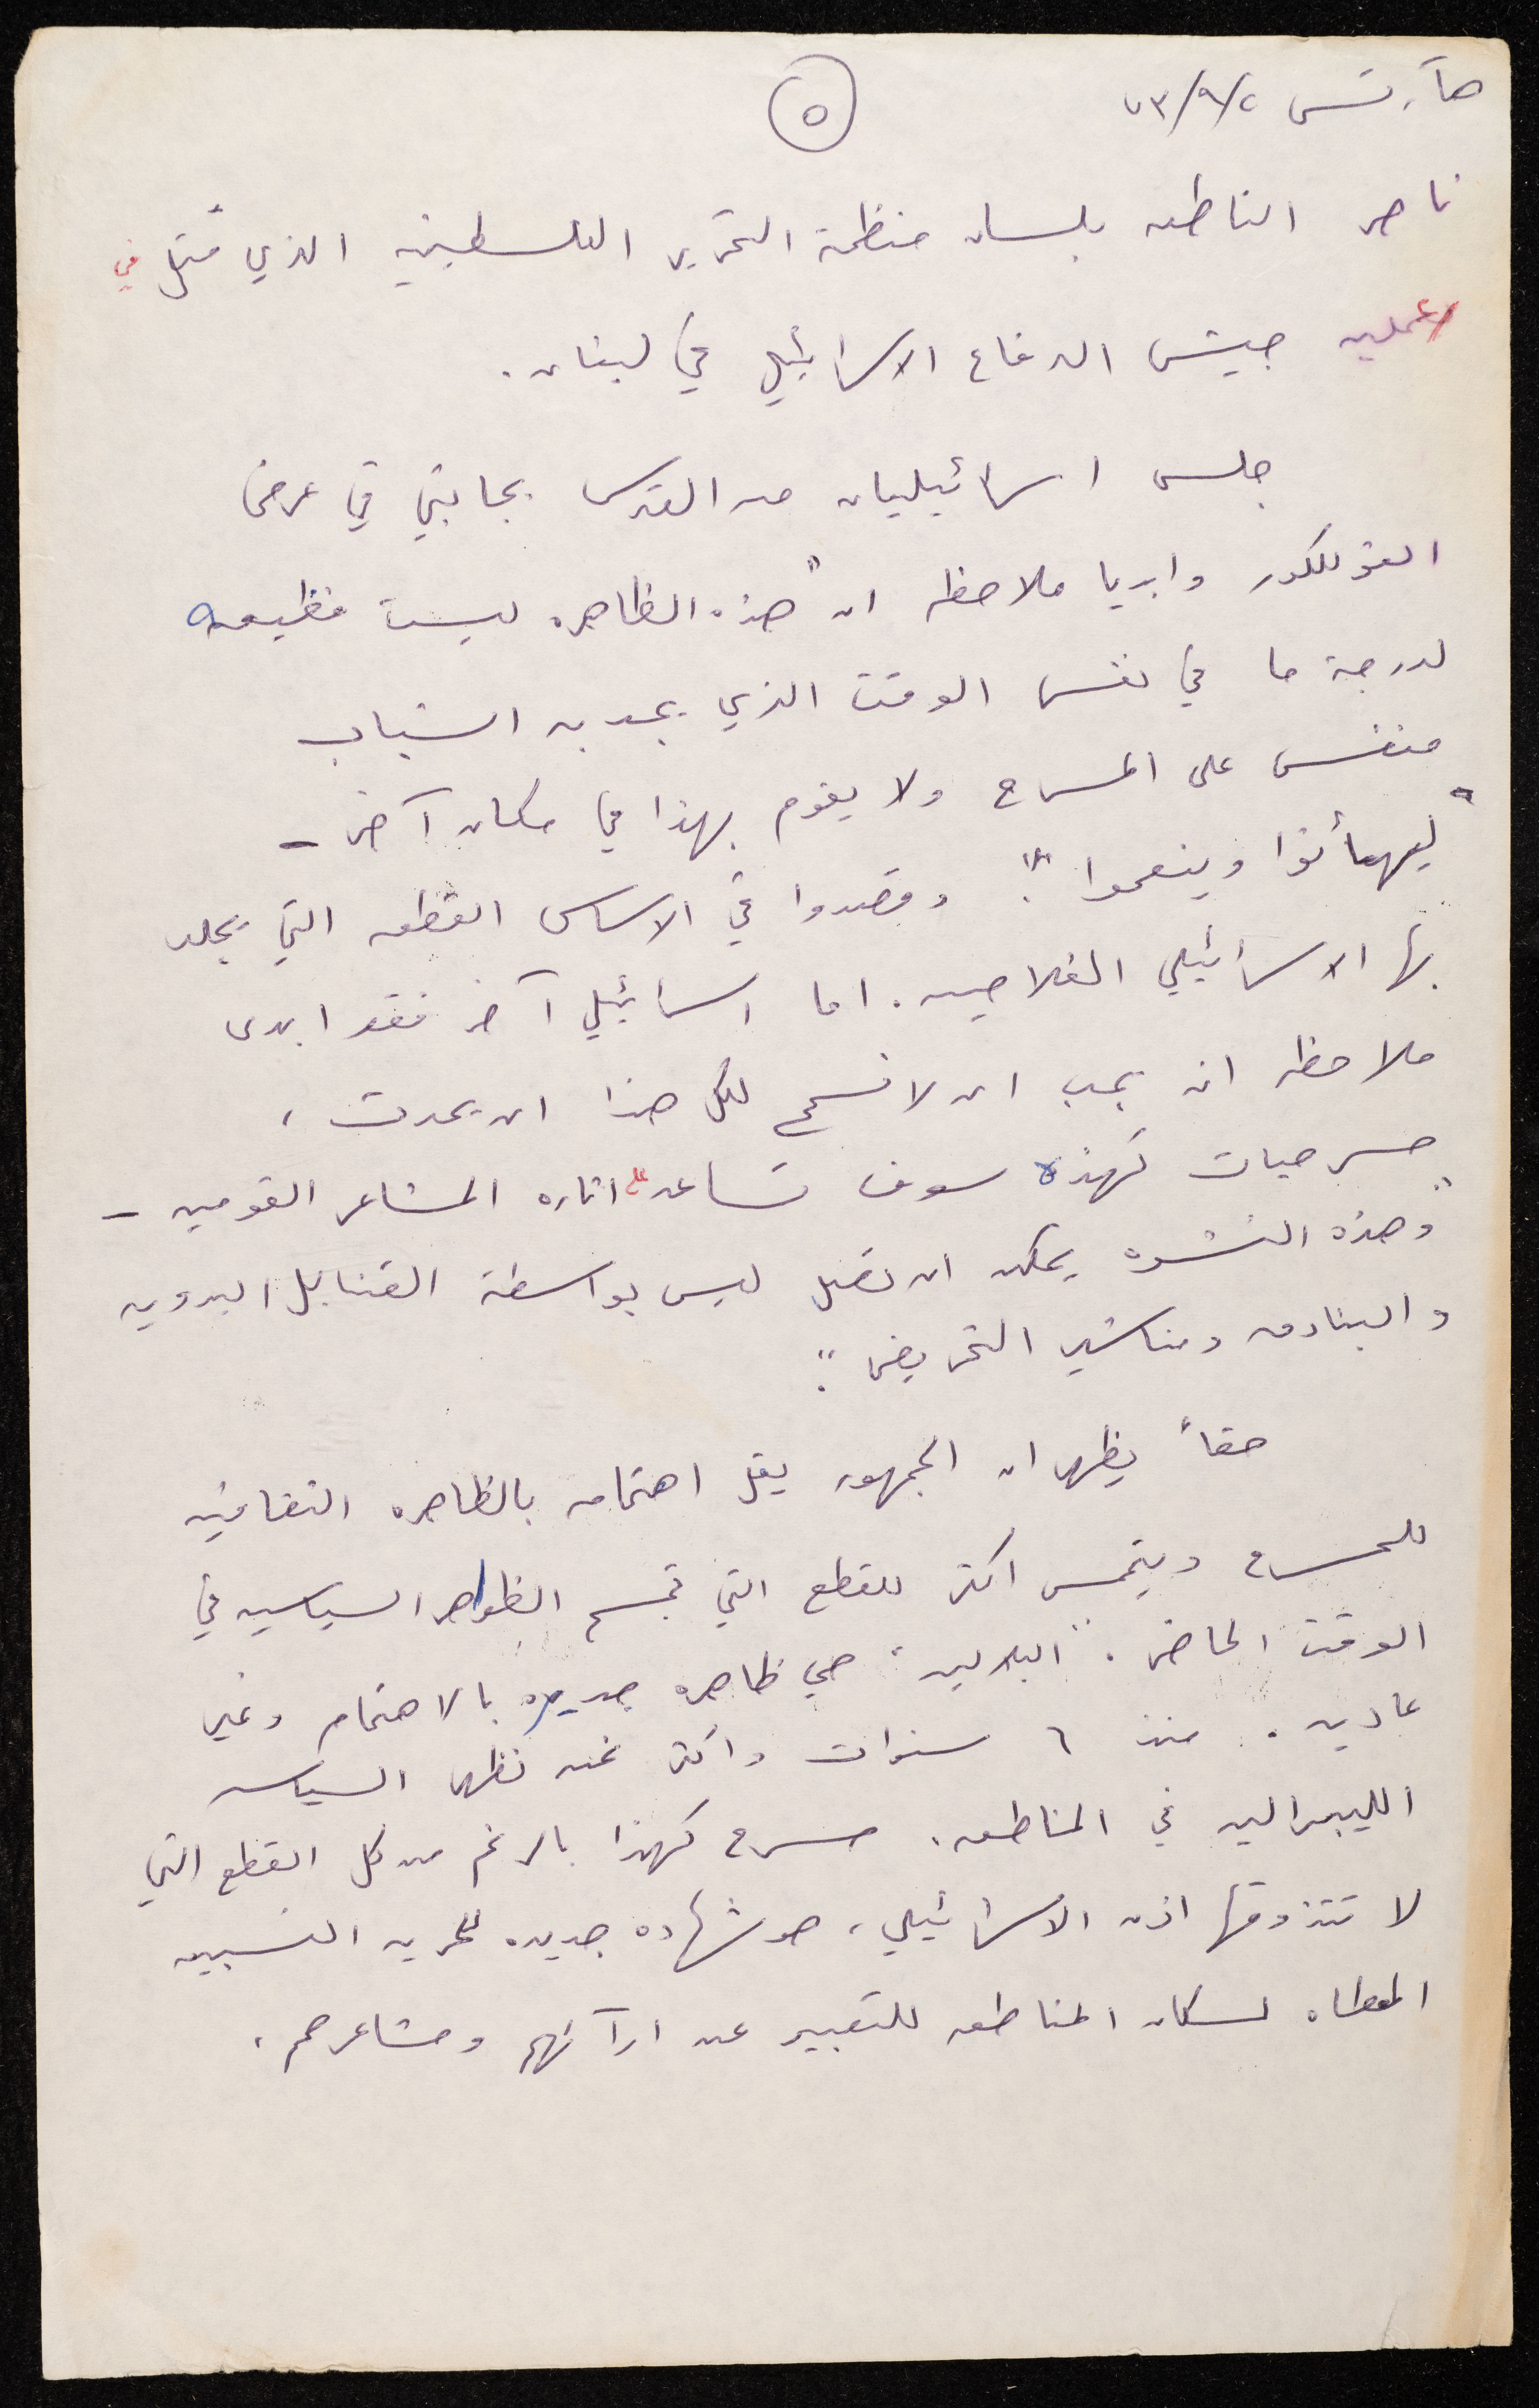 هآرتس ٧٣/٩/٢
٥
ناصر الناطق بلسان منظمة التحرير الفلسطينيه الذي قتل في
عمليه جيش الدفاع الاسرائيلي في لبنان.
جلس اسرائيليان من القدس بجانبي في عرض
الفولكلور وابديا ملاحظه ان "هذه الظاهره ليست فظيعه
لدرجة ما في نفس الوقت الذي يجد به الشباب
منفس على المسرح ولا يقوم بهذا في مكان آخر -
"ليهنأوا وينعموا". وقصدوا في الاساس القطعه التي يجلد
بها الاسرائيلي الفلاحين. اما اسرائيلي آخر فقد ابدى
ملاحظه انه يجب ان لا نسمح لكل هذا ان يحدث،
مسرحيات كهذه سوف تساعد على اثاره المشاعر القوميه -
"وهذه النشوه يمكن ان تصل ليس بواسطة القنابل اليدويه
والبنادق ومناشير التحريض".
حقاً يظهر ان الجمهور يقل اهتمامه بالظاهره الثقافيه
للمسرح ويتحمس اكثر للقطع التي تجسم الظواهر السياسيه في
الوقت الحاضر. "البلالين" هي ظاهره جديره بالاهتمام وغير
عاديه. منذ ٦ سنوات واكثر نحن نظهر السياسه
الليبراليه في المناطق. مسرح كهذا بالرغم من كل القطع التي
لا تتذوقها اذن الاسرائيلي، هو شهاده جديده للحريه النسبيه
المعطاه لسكان المناطق للتعبير عن ارآئهم ومشاعرهم.